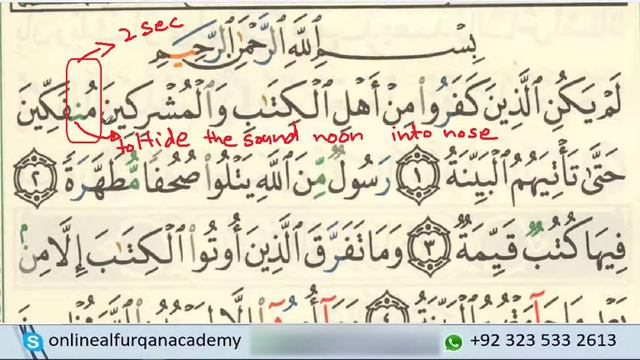 2 sec
بِسْمِ ٱللَّهِ ٱلرَّحْمَٰنِ ٱلرَّحِيمِ
لَمْ يَكُنِ ٱلَّذِينَ كَفَرُوا۟ مِنْ أَهْلِ ٱلْكِتَٰبِ وَٱلْمُشْرِكِينَ مُنفَكِّينَ
to Hide the sound noon into nose
حَتَّىٰ تَأْتِيَهُمُ ٱلْبَيِّنَةُ ١ رَسُولٌ مِّنَ ٱللَّهِ يَتْلُوا۟ صُحُفًا مُّطَهَّرَةً ٢
فِيهَا كُتُبٌ قَيِّمَةٌ ٣ وَمَا تَفَرَّقَ ٱلَّذِينَ أُوتُوا۟ ٱلْكِتَٰبَ إِلَّا مِنۢ
onlinealfurqanacademy +92 323 533 2613